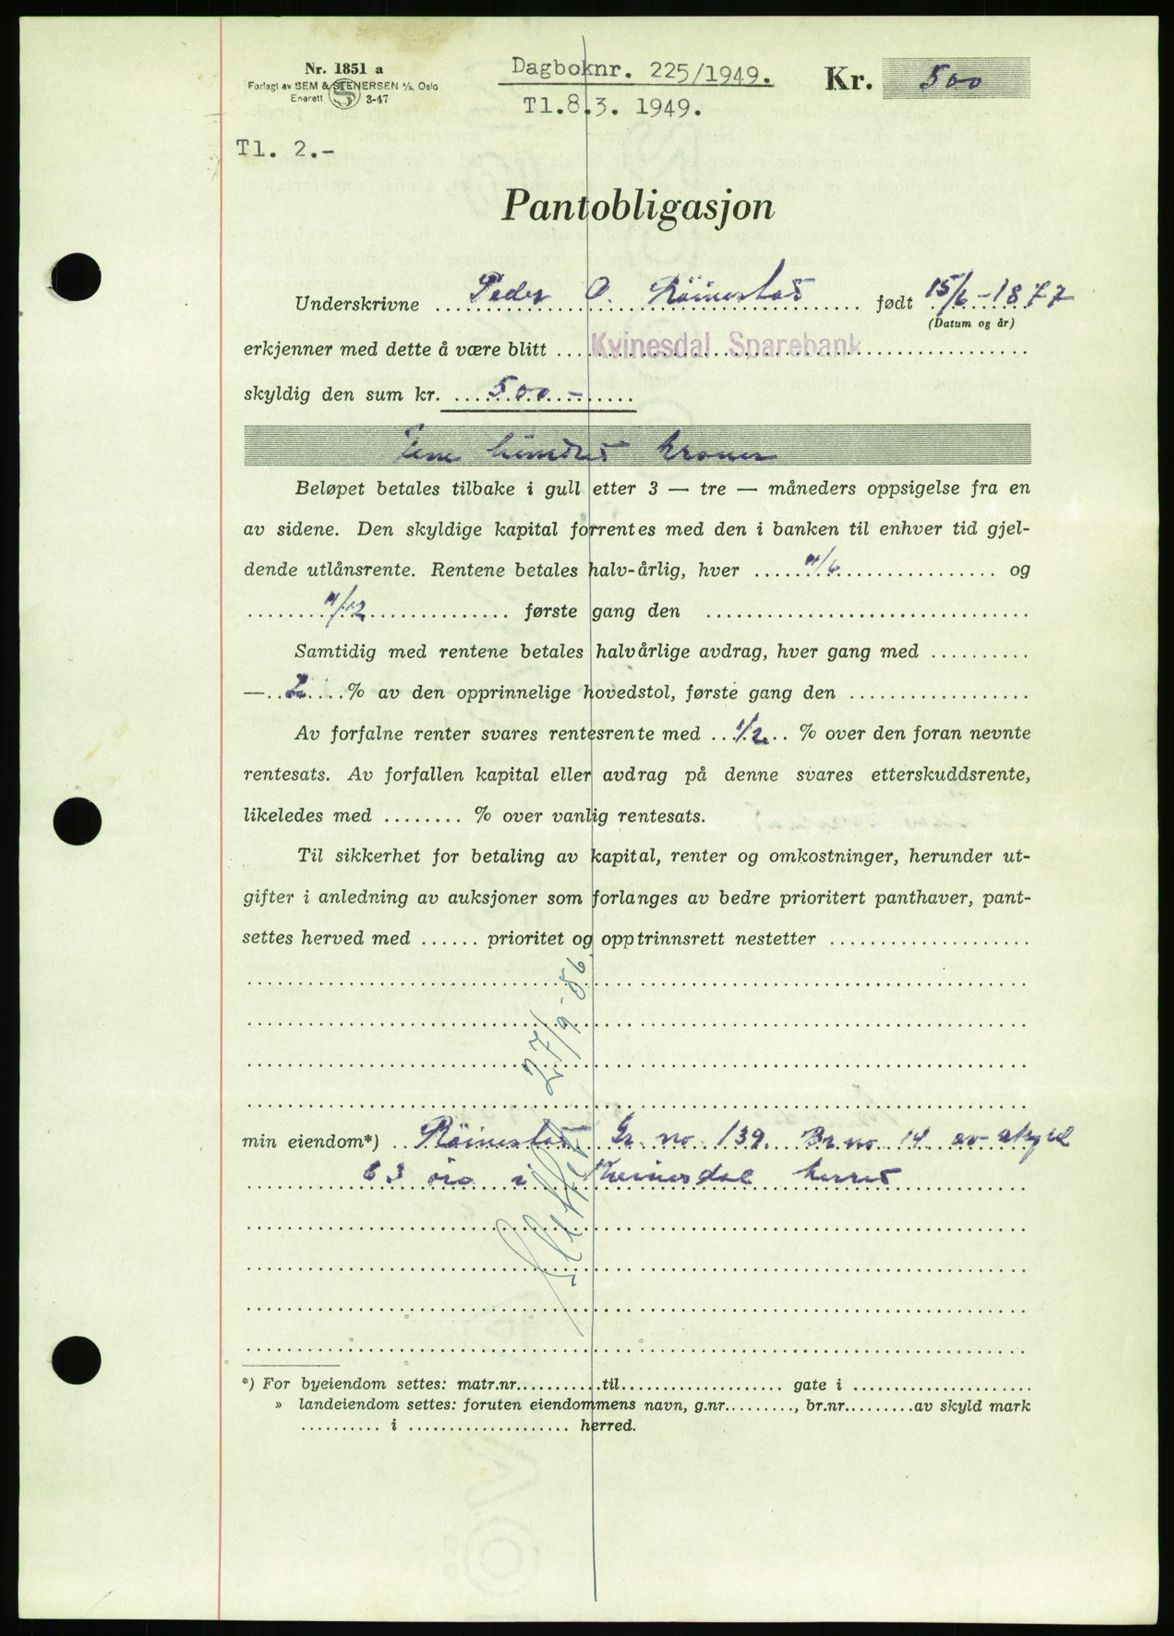 Nr. 1851 a
Forlagt av SEM & STENERSEN A/S, Oslo
Enerett S 3-47
Dagboknr. 225/1949.
Tl.8.3. 1949.
Kr. 500
Tl. 2.-
Pantobligasjon
Underskrivne Peder O. Röinestad født 15/6-1877
(Datum og år)
erkjenner med dette å være blitt Kvinesdal Sparebank
skyldig den sum kr. 500.-
Fem hundred kroner
Beløpet betales tilbake i gull etter 3 — tre — måneders oppsigelse fra en
av sidene. Den skyldige kapital forrentes med den i banken til enhver tid gjel-
dende utlånsrente. Rentene betales halv-årlig, hver 11/6 og
11/12 første gang den
Samtidig med rentene betales halvårlige avdrag, hver gang med
— 2 % av den opprinnelige hovedstol, første gang den
Av forfalne renter svares rentesrente med 1/2 % over den foran nevnte
rentesats. Av forfallen kapital eller avdrag på denne svares etterskuddsrente,
likeledes med ........ % over vanlig rentesats.
Til sikkerhet for betaling av kapital, renter og omkostninger, herunder ut-
gifter i anledning av auksjoner som forlanges av bedre prioritert panthaver, pant-
settes herved med ...... prioritet og opptrinnsrett nestetter
min eiendom*) Röinestad Gr. no 139. Br. no 14 av skyld
63 øre i Kvinesdal herred
Slettet 27/9-86.
*) For byeiendom settes: matr.nr..........til.................... gate i ......................
» landeiendom settes: foruten eiendommens navn, g.nr........., br.nr.........av skyld mark
.......... i .................... herred.